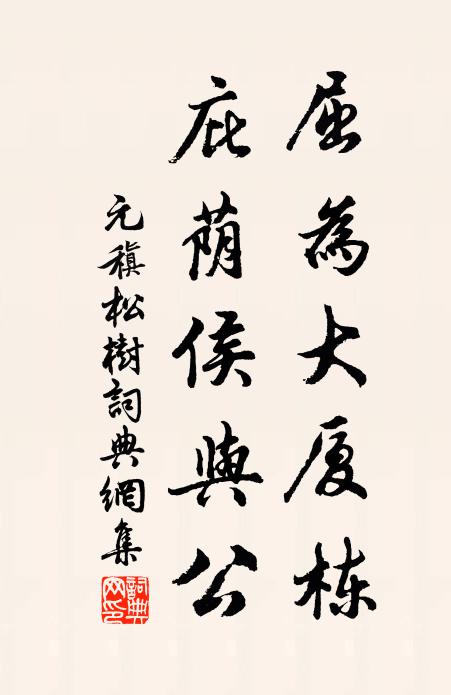 屈為大厦栋
庇荫侯與公
元稹松樹詞典網集
詞典网印